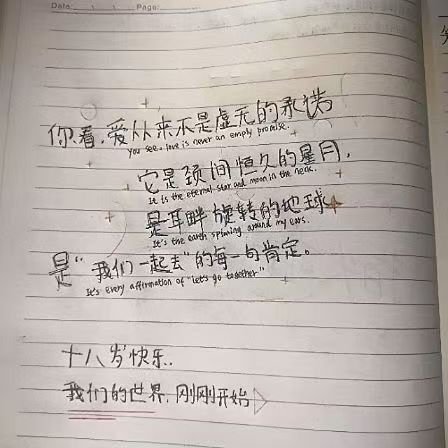 Date: Page:
你看，爱从来不是虚无的承诺
you see, love is never an empty promise.
它是颈间恒久的星月，
It is the eternal star and moon in the neck.
是耳畔旋转的地球
It's the earth spinning around my ears.
是“我们一起去”的每一句肯定。
It's every affirmation of "let's go together"
十八岁快乐.
我们的世界，刚刚开始